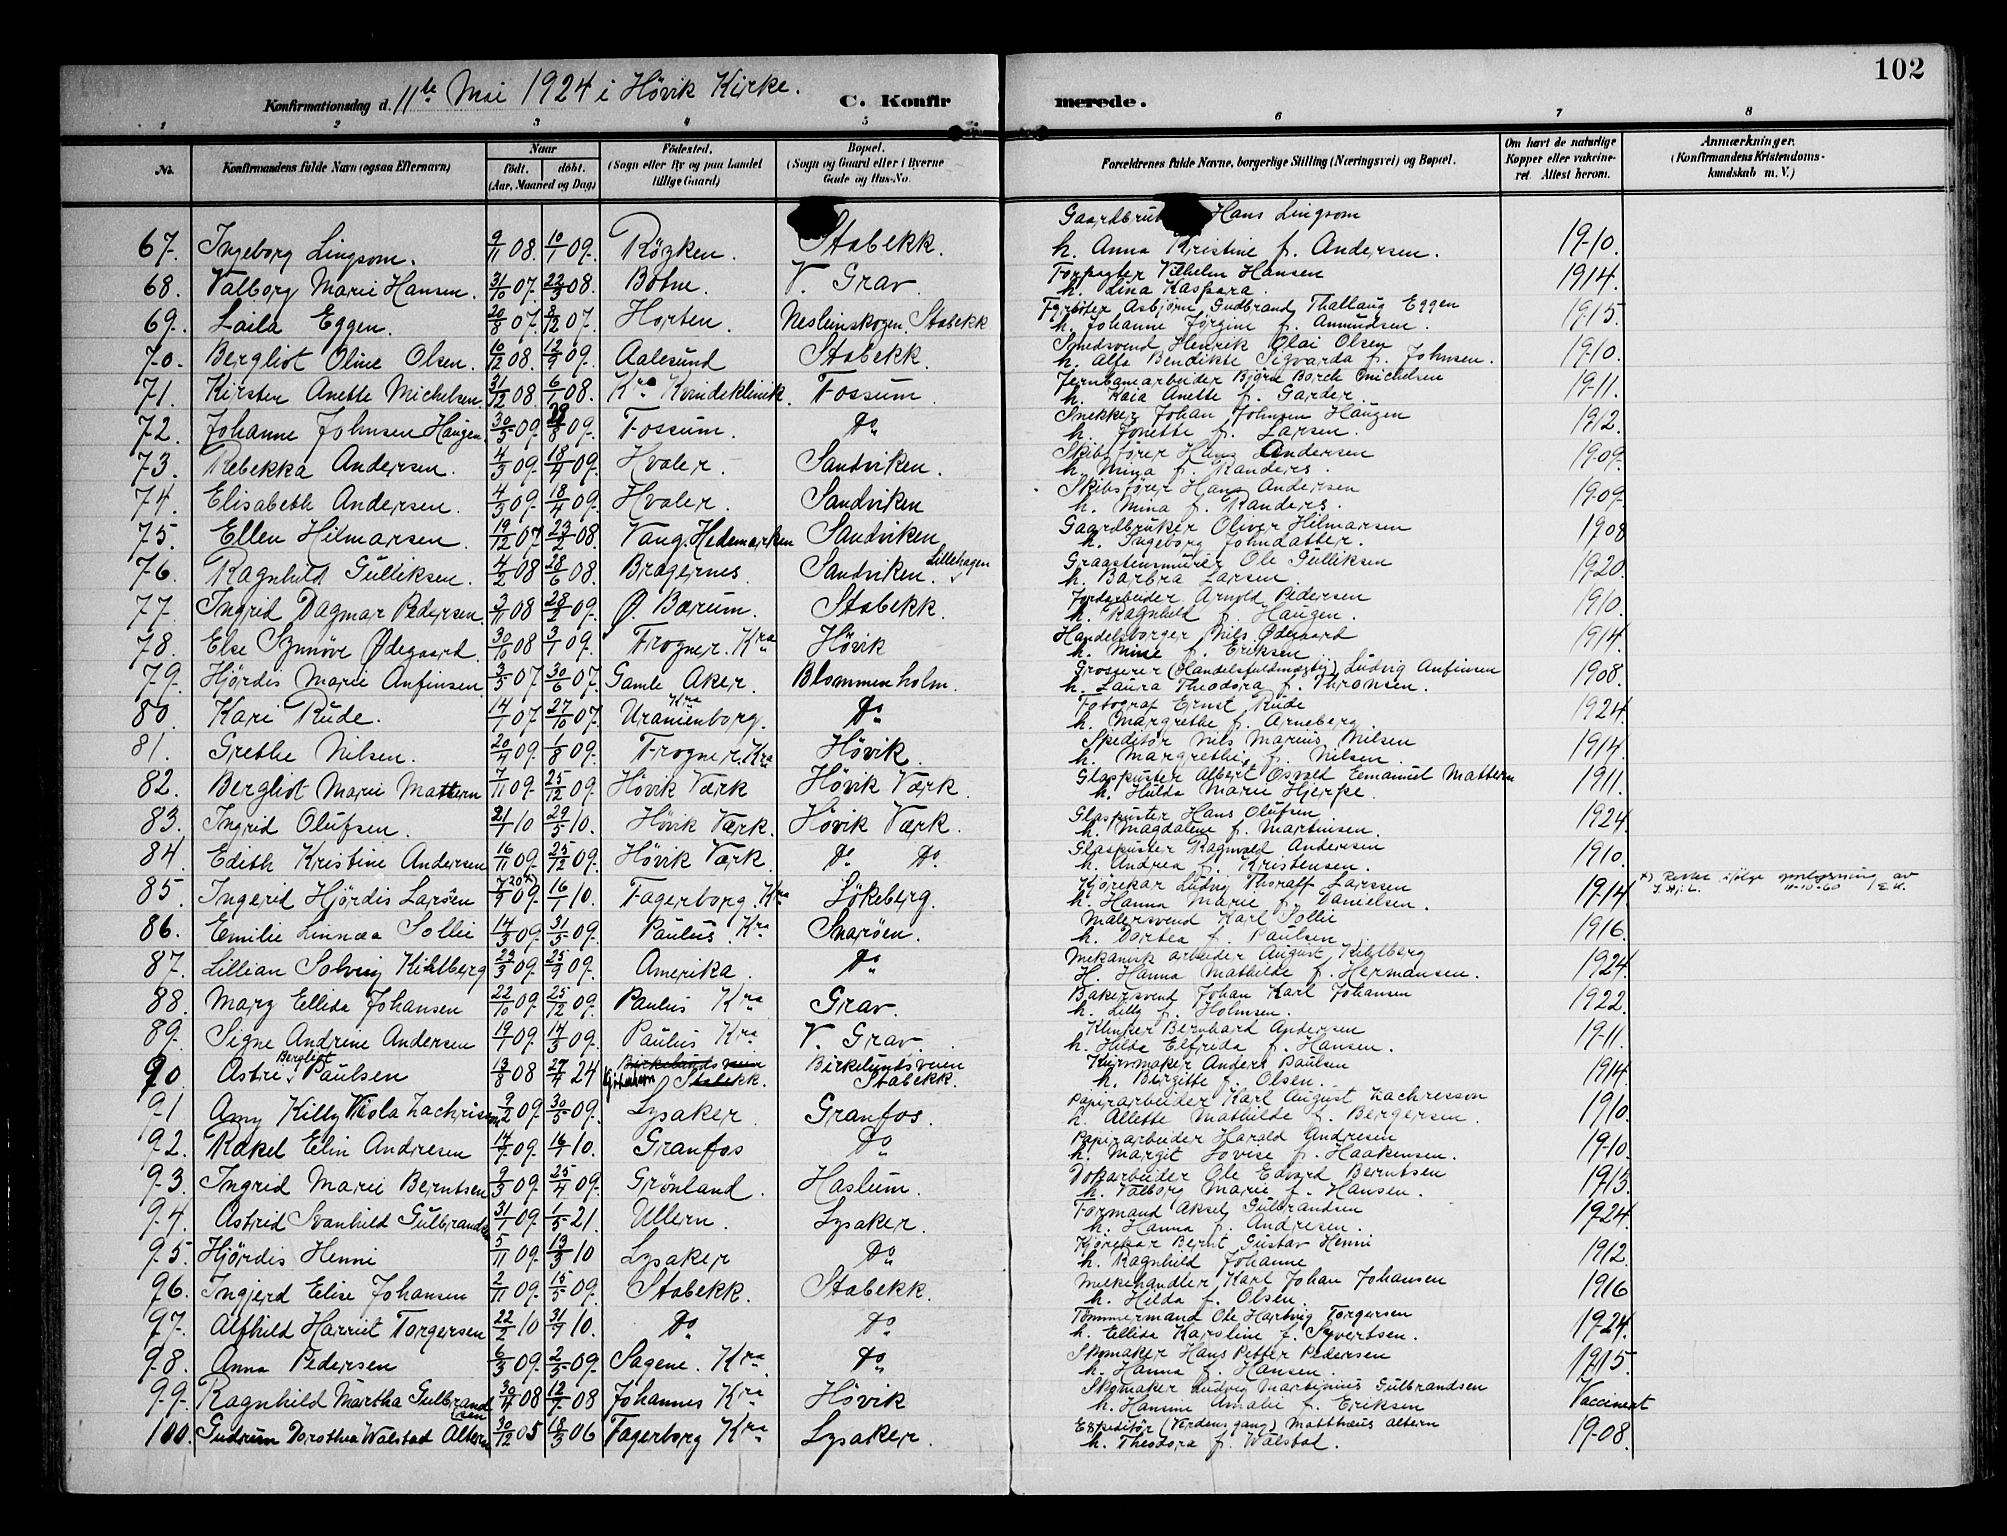 102
Konfirmationsdag d. 11te Mai 1924 i Høvik Kirke. C. Konfirmerede.
1 2 3 4 5 6 7 8
No. Konfirmandens fulde Navn (ogsaa Efternavn) Naar født. døbt. (Aar, Maaned og Dag) Fødested. (Sogn eller By og paa Landet tillige Gaard) Bopæl. (Sogn og Gaard eller i Byerne Gade og Hus-No. Forældrenes fulde Navne, borgerlige Stilling (Næringsvei) og Bopæl. Om havt de naturlige Kopper eller vakcineret. Attest herom. Anmærkninger. (Konfirmandens Kristendomskundskab m. V.)
67. Ingeborg Lingsom. 9/11 08. 10/1 09. Röyken. Stabekk. Gaardbruk Hans Lingsom h. Anna Kristine f. Andersen. 1910.
68. Valborg Marie Hansen. 31/10 07. 22/3 08. Botne. V. Grav. Forpagter Vilhelm Hansen h. Lina Kaspara. 1914.
69. Laila Eggen. 20/8 07. 8/12 07. Horten. Neslinskogen, Stabekk Fyrbøter Asbjørn Gudbrand Thallaug Eggen h. Johanne Jörgine f. Amundsen. 1915.
70. Bergliot Oline Olsen. 10/12 08. 12/9 09. Aalesund Stabekk. Smedsvend Henrik Olai Olsen h. Alfa Bendikte Sigvarda f. Johnsen. 1910.
71. Kirsten Anette Michelsen 31/12 08. 6/1 08. Kra Kvindeklinik. Fossum. Jernbanearbeider Bjørn Borch Michelsen h. Kaia Anette f. Garder. 1911.
72. Johanne Johnsen Haugen. 30/5 09. 29/8 09. Fossum. Do Snekker Johan Johnsen Haugen h. Jonette f. Larsen. 1912.
73. Rebekka Andersen. 4/3 09. 18/4 09. Hvaler. Sandviken. Skibsfører Hans Andersen h. Mina f. Randers. 1909.
74. Elisabeth Andersen. 4/3 09. 18/4 09. Hvaler. Sandviken Skibsfører Hans Andersen h. Mina f. Randers. 1909.
75. Ellen Hilmarsen. 19/12 07 23/2 08. Vang. Hedemarken Sandviken Gaardbruker Oliver Hilmarsen h. Ingeborg Johndatter. 1908
76. Ragnhild Gulliksen. 4/2 08 28/6 08. Bragernes. Sandviken. Lillehagen Graastensmurer Ole Gulliksen h. Barbra Larsen. 1920.
77. Ingrid Dagmar Pedersen. 3/11 08 28/2 09. Ø. Bærum. Stabekk. Jordarbeider Arnold Pedersen h. Ragnhild f. Haugen. 1910.
78. Else Synnöve Ødegaard. 30/10 08 3/1 09. Frogner. Kra Høvik Handelsborger Nils Ødegaard h. Mine f. Eriksen 1914.
79. Hjördis Marie Anfinsen 3/5 07 30/6 07. Gamle Aker. Blommenholm. Grosserer (Handelsfuldmægtig) Ludvig Anfinsen h. Laura Theodora f. Thronsen. 1908.
80. Kari Rude. 14/7 07 27/10 07. Uranienborg. Kra Do Fotograf Ernst Rude h. Margrethe f. Arneberg. 1924.
81. Grethe Nilsen. 20/4 09. 1/8 09. Frogner. Kra Høvik. Speditør Nils Marius Nilsen h. Margrethe f. Nilsen. 1914.
82. Bergliot Marie Mattern 7/11 09. 25/12 09. Høvik Værk Høvik Værk. Glaspuster Albert Osvald Emanuel Mattern h. Hulda Marie Hjerpe. 1911.
83. Ingrid Olufsen. 21/1 10 29/5 10. Høvik Værk. Høvik Værk. Glaspuster Hans Olufsen h. Magdalene f. Martinsen. 1924.
84. Edith Kristine Andersen 16/11 09. 25/12 09. Høvik Værk. Do Do Glaspuster Ragnvald Andersen h. Andrea f. Kristensen. 1910.
85. Ingerid Hjördis Larsen 09. 16/1 10. Fagerborg. Kra Lökeberg. Kjørekar Ludvig Thoralf Larssen h. Hanna Marie f. Danielsen. 1914. x) Rettet ifølge oplysning av
11-10-60
86. Emilie Linnæa Sollie 14/3 09. 31/5 09. Paulus. Kra Snarøen. Malersvend Karl Sollie h. Dortea f. Paulsen 1916.
87. Lillian Solveig Kihlberg 23/3 09. 25/9 09. Amerika. Do Mekanisk arbeider August Kihlberg H. Hanna Mathilde f. Hermansen. 1924.
88. Mary Ellida Johansen 22/10 09. 25/12 09. Paulus Kra Grav. Bakersvend Johan Karl Johansen h. Lilly f. Holmsen. 1922.
89. Signe Andrine Andersen 19/1 09. 14/3 09. Paulus Kra V. Grav. Klinker Bernhard Andersen h. Hilda Elfrida f. Hansen. 1911.
90 Astri Bergliot Paulsen 13/8 08 27/4 24 Birkelundsveien Stabekk. Birkelundsveien Stabekk. Kurvmaker Anders Paulsen h. Birgitte f. Olsen. 1914.
91 Amy Killy Viola Zachrisson 9/2 09. 30/5 09. Lysaker Granfos. Papirarbeider Karl August Zachresson h. Allette Mathilde f. Bergersen. 1910.
92. Rakel Elin Andresen 14/9 09. 16/1 10. Granfos Do Papirarbeider Harald Andresen h. Margit Lovise f. Haakensen. 1910.
93. Ingrid Marie Berntsen 9/3 09. 25/4 09. Grønland. Haslum. Dokarbeider Ole Edvard Berntsen h. Valborg Marie f. Hansen. 1913.
94. Astrid Svanhild Gulbrandsen 31/1 09. 1/5 21. Ullern. Lysaker. Formand Aksel Gulbrandsen h. Hanna f. Andresen. 1924.
95. Hjördis Henni 5/11 09. 13/3 10 Lysaker Do Kjørekar Bernt Gustav Henni h. Ragnhild Johanne 1912.
96. Ingjerd Elise Johansen 2/11 09. 15/5 09. Stabekk. Stabekk. Melkehandler Karl Johan Johansen h. Hilda f. Olsen. 1916
97. Alfhild Harriet Torgersen 22/2 10 31/7 10. Do Do Tømmermand Ole Hartvig Torgersen h. Ellida Karoline f. Syvertsen. 1924.
98. Anna Pedersen 6/3 09. 2/5 09. Sagene. Kra Do Skomaker Hans Petter Pedersen h. Hanna f. Hansen. 1915.
99. Ragnhild Martha Gulbrandsen 30/4 08 12/7 08 Johannes Kra Høvik Skomaker Ludvig Martinius Gulbrandsen h. Hansine Amalie f. Eriksen Vaccineret
100. Gudrun Dorothea Walstad Altern 30/12 05 18/3 06 Fagerborg Kra Lysaker. Expeditør (Verdens gang) Matthæus Altern h. Theodora f. Walstad. 1908.